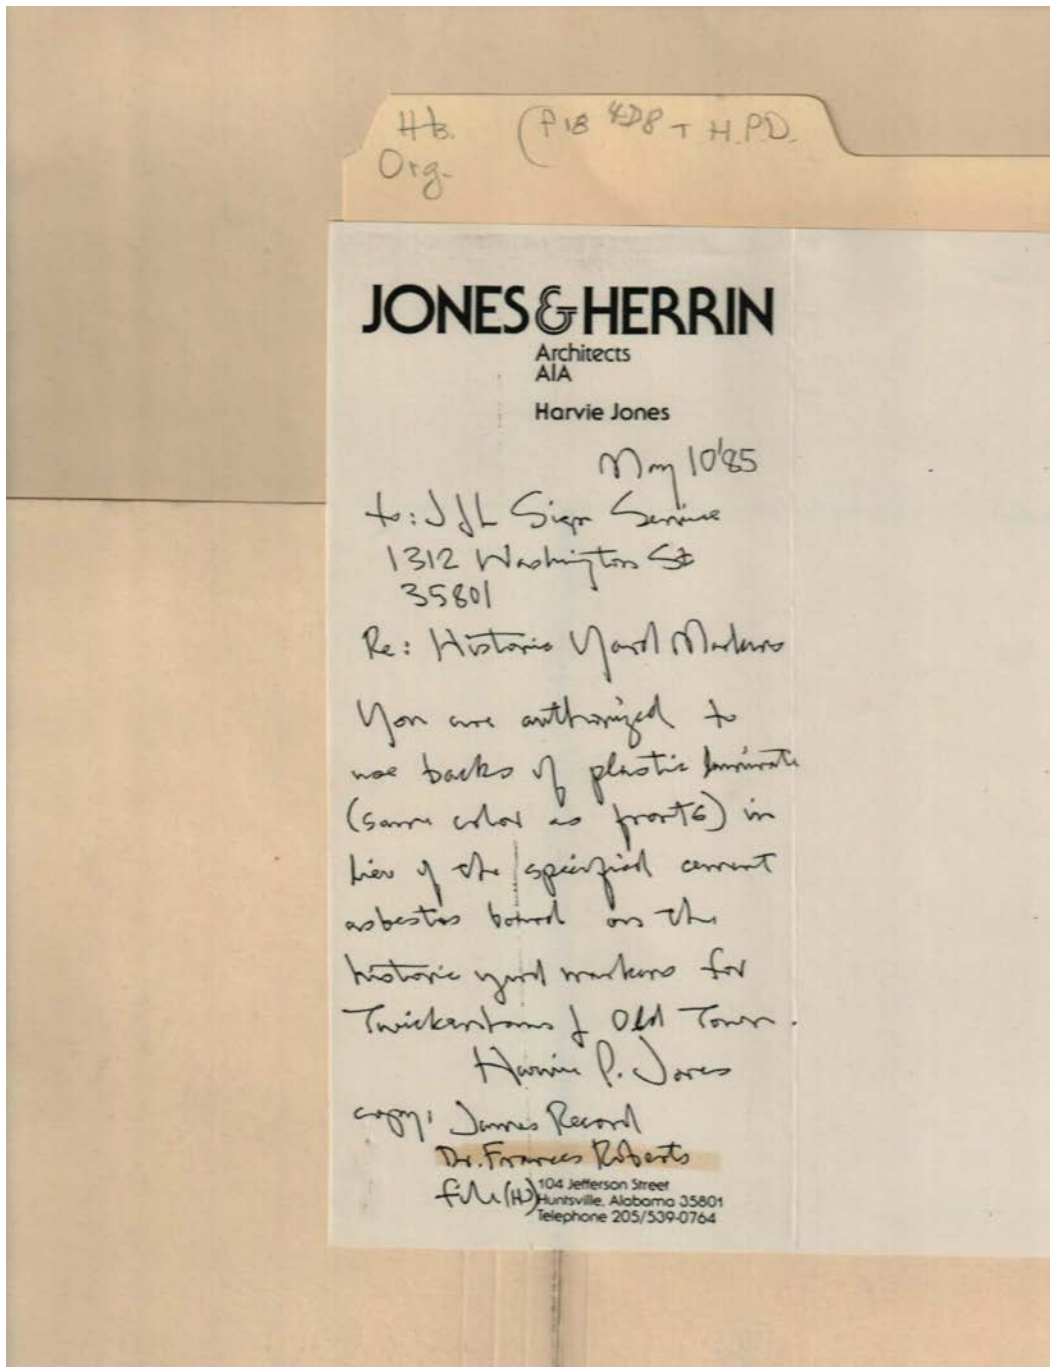 Hts. (P18 4D8 T H.P.D.
Org.
JONES & HERRIN
Architects
AIA
Harvie Jones
May 10 '85
to: J&L Sign Service
1312 Washington St
35801
Re: Historic Yard Markers
You are authorized to
use backs of plastic laminate
(same color as fronts) in
lieu of the specified cement
asbestos board on the
historic yard markers for
Twickenham & Old Town.
Harvie P. Jones
copy: James Record
Dr. Frances Roberts
file (H)
104 Jefferson Street
Huntsville, Alabama 35801
Telephone 205/539-0764